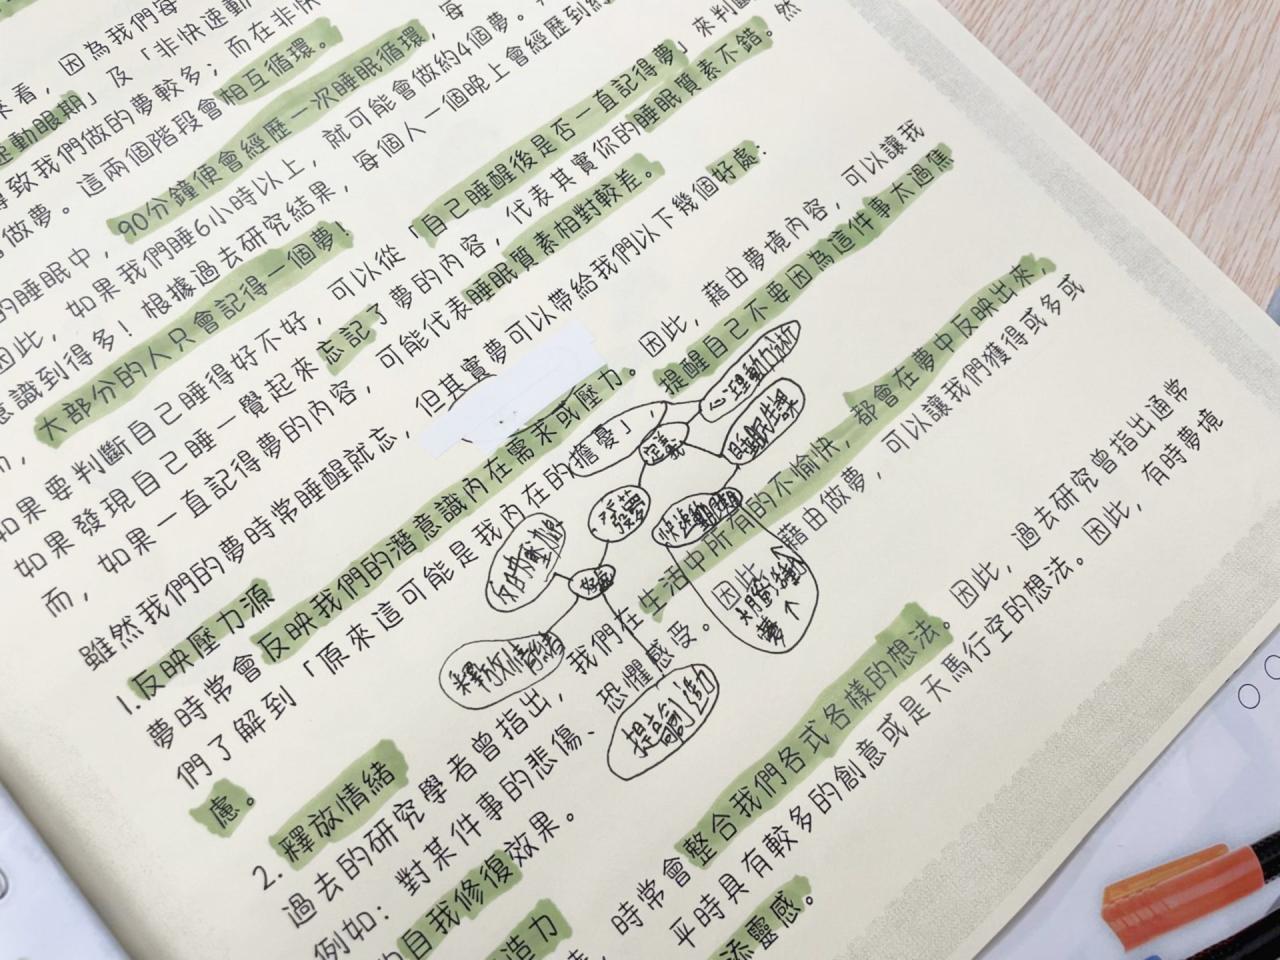 來看，因為我們每
速動眼期」及「非快速動
導致我們做的夢較多；而在非快
做夢。這兩個階段會相互循環。
的睡眠中，90分鐘便會經歷一次睡眠循環，每
因此，如果我們睡6小時以上，就可能會做約4個夢。
意識到得多！根據過去研究結果，每個人一個晚上會經歷到
大部份的人只會記得一個夢！
如果要判斷自己睡得好不好，可以從「自己睡醒後是否一直記得夢」來判斷
如果發現自己睡一覺起來忘記了夢的內容，代表其實你的睡眠質素不錯。然
而，如果一直記得夢的內容，可能代表睡眠質素相對較差。
雖然我們的夢時常睡醒就忘，但其實夢可以帶給我們以下幾個好處：
1.反映壓力源
夢時常會反映我們的潛意識內在需求或壓力。因此，藉由夢境內容，可以讓我
們了解到「原來這可能是我內在的擔憂」，提醒自己不要因為這件事太過焦
慮。
2. 釋放情緒
過去的研究學者曾指出，我們在生活中所有的不愉快，都會在夢中反映出來，
例如：對某件事的悲傷、恐懼感受。因此，藉由做夢，可以讓我們獲得或多或
的自我修復效果。
造力
時常會整合我們各式各樣的想法。因此，過去研究曾指出通常
平時具有較多的創意或是天馬行空的想法。因此，有時夢境
添靈感。
心理動力分析
定義
睡眠生理
發夢
快速動眼期
反映壓力源
好處
釋放情緒
提高創造力
夢↑